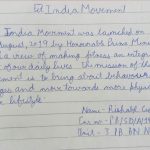 Fit India Movement
India Movement was launched on
August, 2019 by Honourable Prime Minis
a view of making fitness an integral
of our daily lives. The mission of the
ment is to bring about behaviour
ges and move towards more physic
lifestyle.
Name - Rishabh
Unit - 3